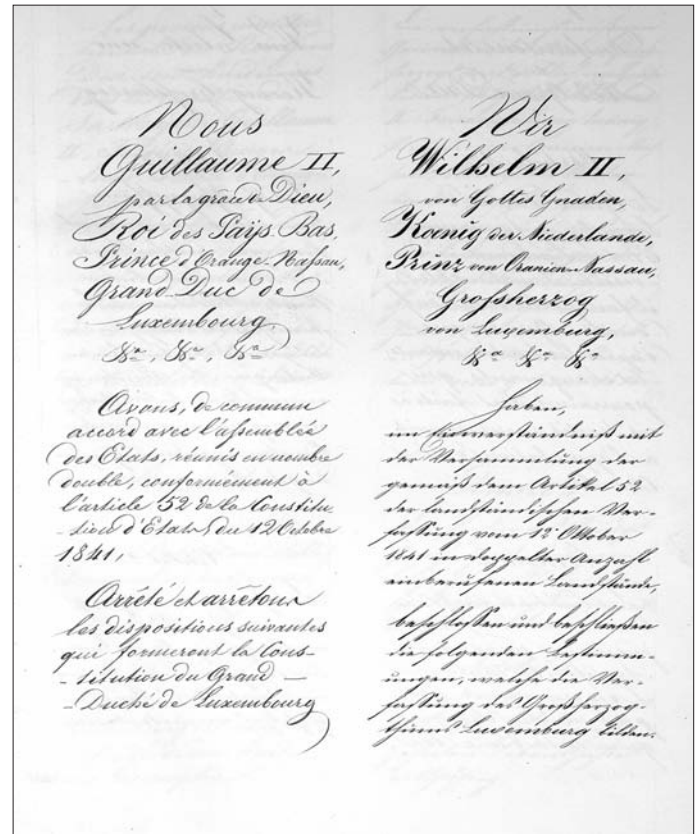 Nous
Guillaume II,
par la grace de Dieu,
Roi des Païys-Bas,
Prince d'Orange-Nassau,
Grand-Duc de
Luxembourg
&a, &a, &a
Avons, de commun
accord avec l'assemblée
des Etats, réunis en nombre
double, conformément à
l'article 52 de la Constitu-
-tion d'Etats, du 12 Octobre
1841,
Arrêté et arrêtons
les dispositions suivantes
qui formeront la Cons-
-titution du Grand-
-Duché de Luxembourg
Wir
Wilhelm II,
von Gottes Gnaden,
Koenig der Niederlande,
Prinz von Oranien-Nassau,
Großherzog
von Luxemburg,
&a &a &a
Haben,
im Einverständniß mit
der Versammlung der
gemäß dem Artikel 52
der landständischen Ver-
fassung vom 12n Oktober
1841 in doppelter Anzahl
einberufenen Landstände,
beschlossen und beschließen
die folgenden Bestimm-
ungen, welche die Ver-
fassung des Großherzog-
thums Luxemburg bilden.